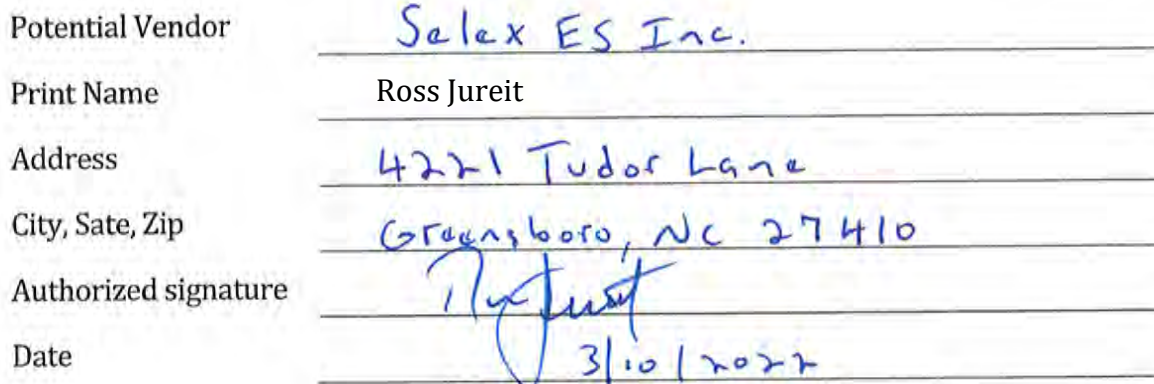 Potential Vendor Selex ES Inc.
Print Name Ross Jureit
Address 4221 Tudor Lane
City, Sate, Zip Greensboro, NC 27410
Authorized signature
Date 3/10/2022